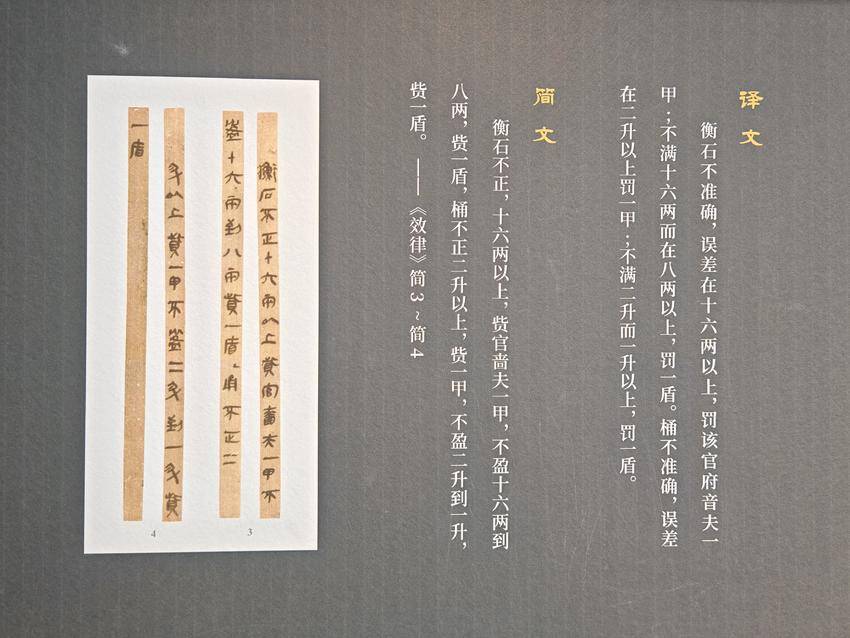 译文
衡石不准确，误差在十六两以上，罚该官府音夫一
甲；不满十六两而在八两以上，罚一盾。桶不准确，误差
在二升以上罚一甲；不满二升而一升以上，罚一盾。
简文
衡石不正，十六两以上，赀官啬夫一甲，不盈十六两到
八两，赀一盾，桶不正二升以上，赀一甲，不盈二升到一升，
赀一盾。 ——《效律》简3~简4
衡石不正十六兩以上貲官嗇夫一甲不
盈十六兩到八兩貲一盾甬不正二
升以上貲一甲不盈二升到一升貲
一盾
3
4